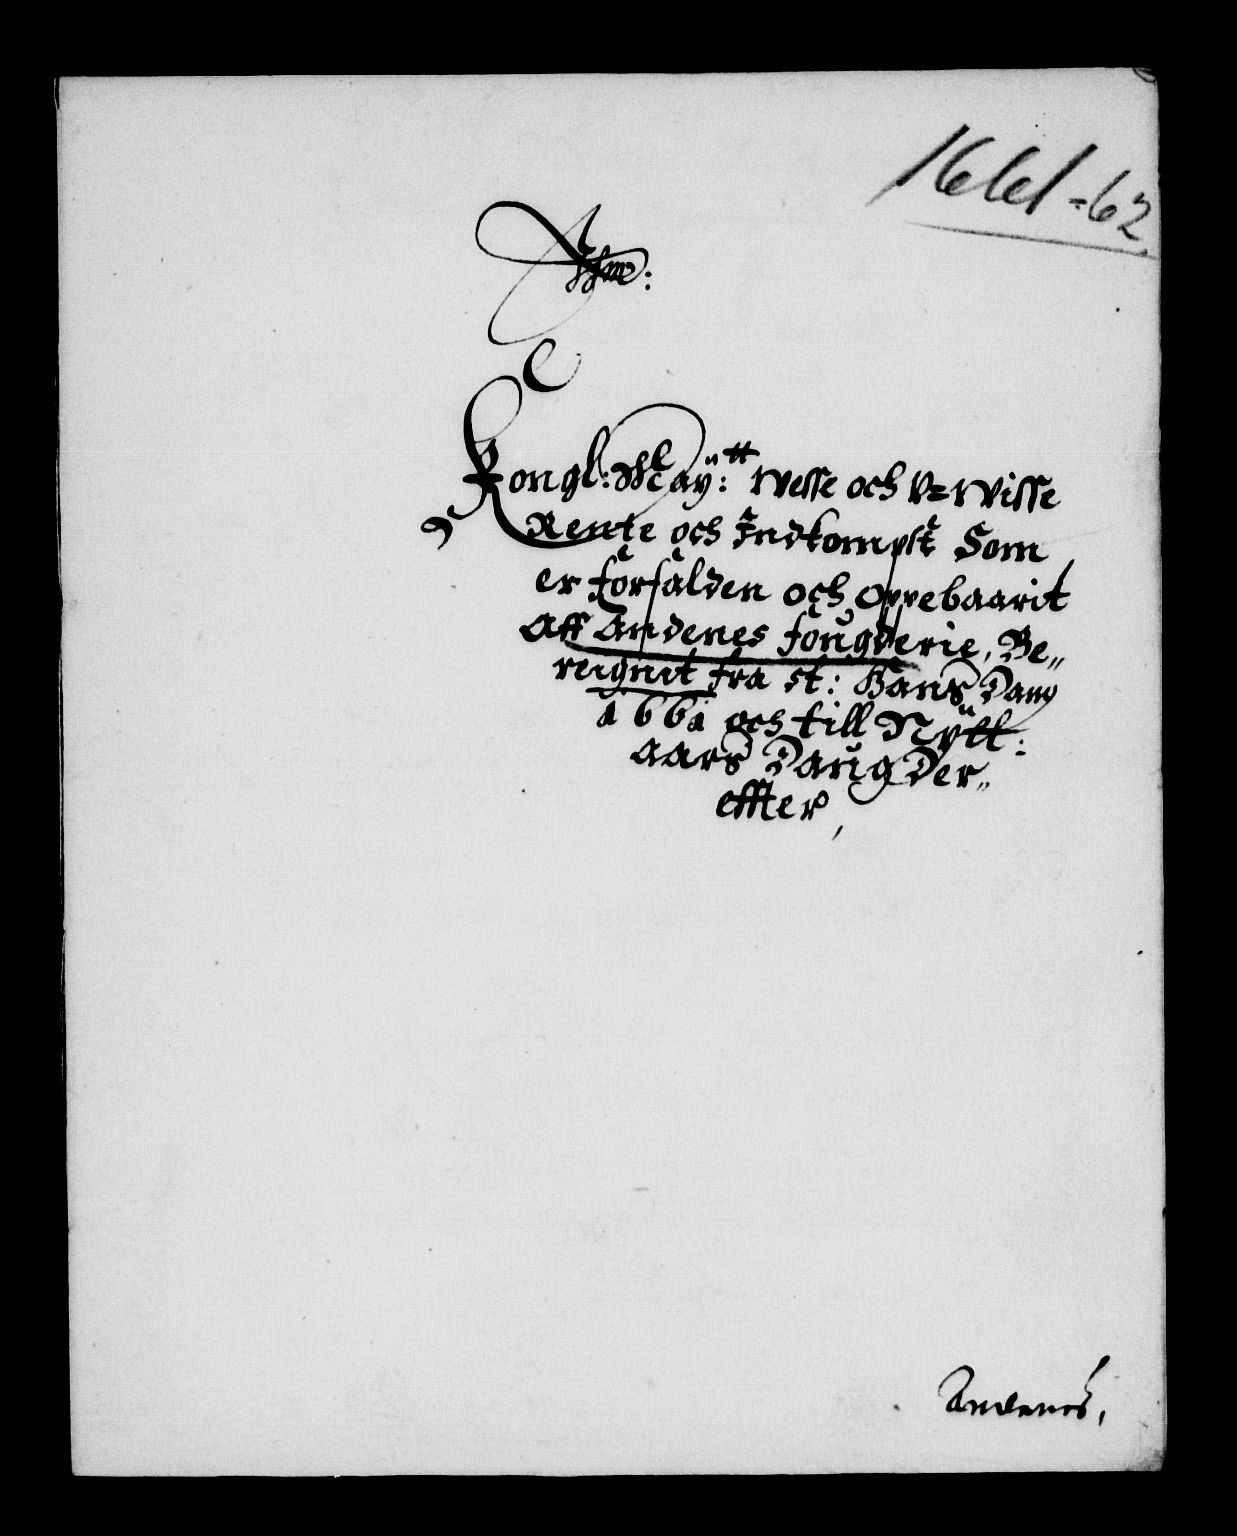 1661-62
Kongl: Maÿ:tt Wesse och V=Wisse
Rente och Indkompst Som
er forfalden och Oppebaarit
Aff Andenes fougderie, Be„
reignit fra st: Hans Daug
1661 och till Nÿtt:
aars Daug Der„
effter,
Andenes,